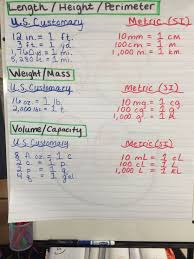 Length / Height / Perimeter
U.S. Customary Metric (SI)
12 in = 1 ft. 10 mm = 1 cm
3 ft = 1 yd. 100 cm = 1 m
1,760 yd = 1 mi 1,000 m = 1 km
5,280 ft = 1 mi.
Weight/Mass
U.S. Customary Metric (SI)
16 oz = 1 lb. 10 mg = 1 cg
2,000 lbs = 1 T 100 cg = 1 g
1,000 g = 1 kg
Volume/Capacity
U.S. Customary Metric (SI)
8 fl oz = 1 c 10 mL = 1 cL
2 c = 1 p 100 cL = 1 L
2 p = 1 q 1,000 L = 1 kL
4 q = 1 gal